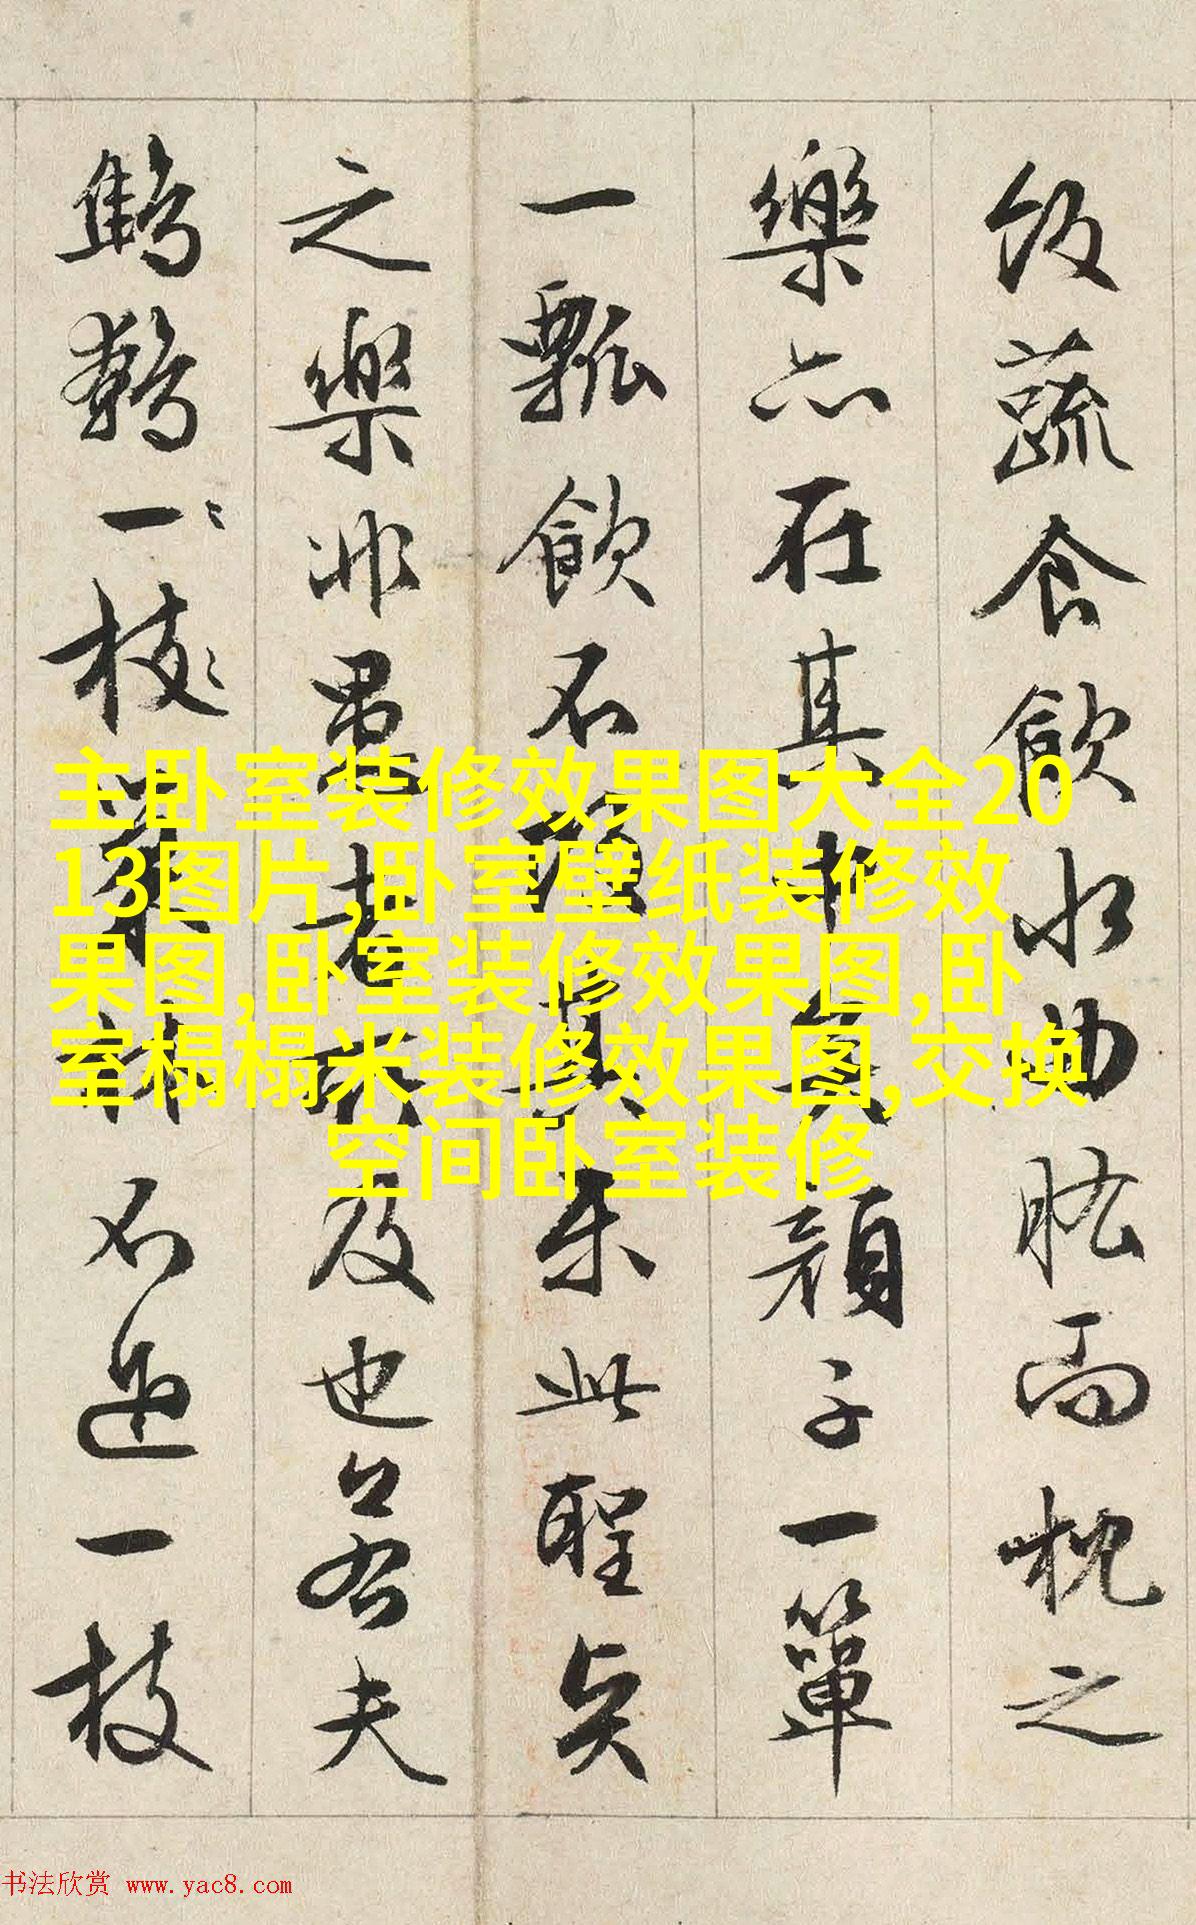 飯蔬食飲水曲肱而枕之
樂亦在其中矣顏子一簞
一瓢飲不改其樂此聖賢
之樂非愚者所及也若夫
鷦鷯一〻枝〻巢林不過一枝
主卧室装修效果图大全20
13图片,卧室壁纸装修效
果图,卧室装修效果图,卧
室榻榻米装修效果图,交换
空间卧室装修
书法欣赏 www.yac8.com